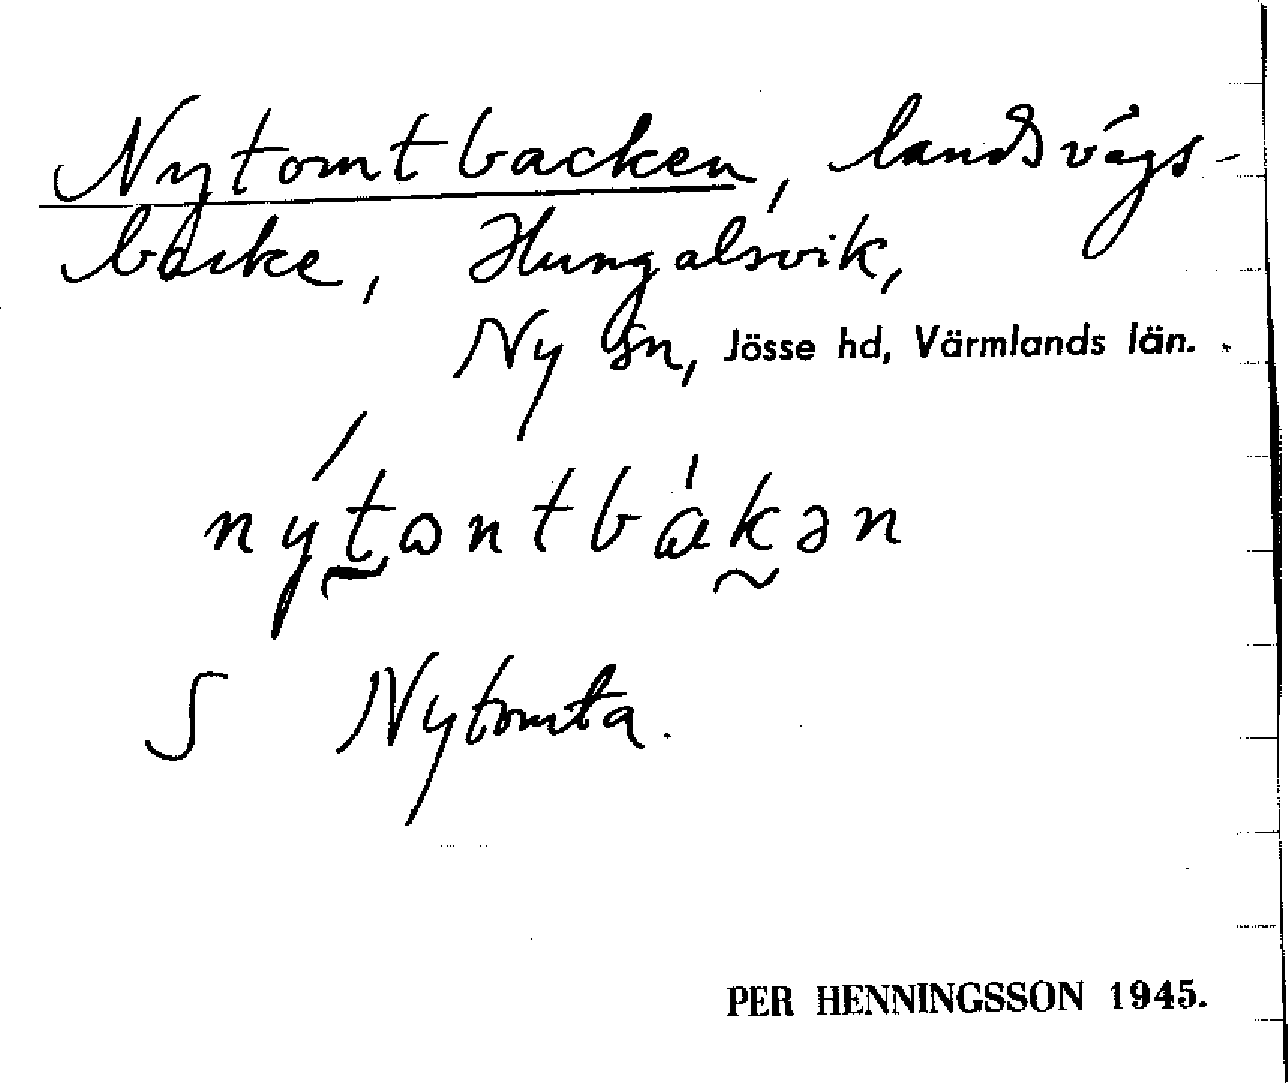 Nytomtbacken, landsvägs-
backe, Hungalsvik,
Ny sn, Jösse hd, Värmlands län.
nýtωntbákən
S Nytomta.
PER HENNINGSSON 1945.